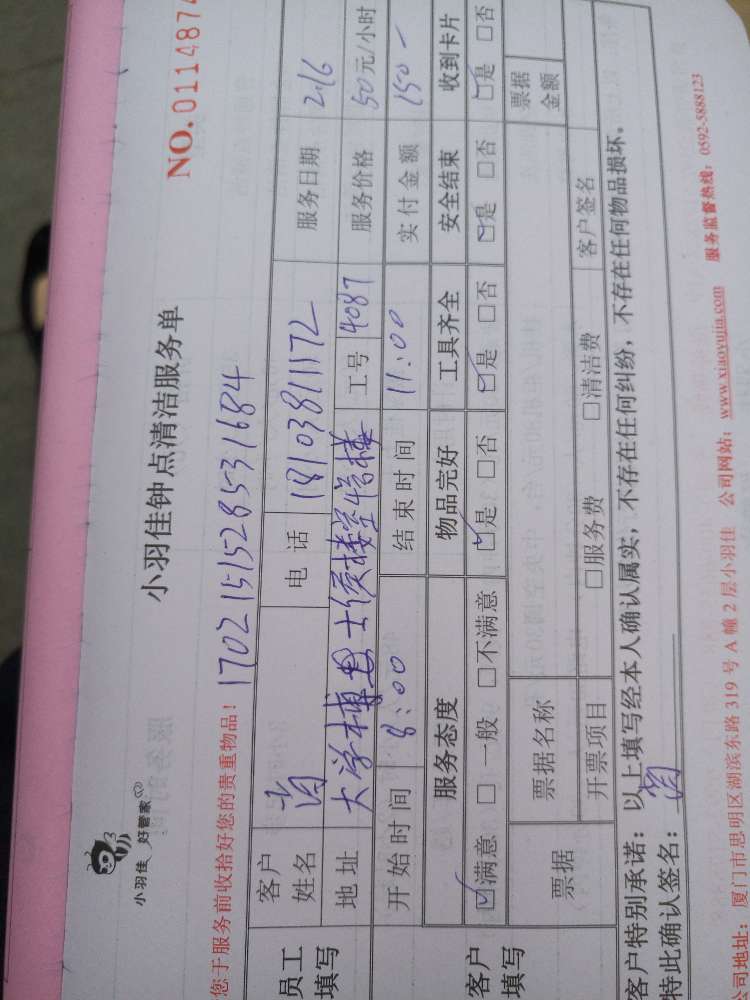 小羽佳 好管家
小羽佳钟点清洁服务单
NO.0114874
您于服务前收拾好您的贵重物品！
1702151528531684
员工填写
客户姓名 肖 电话 18103811172 服务日期 2.16
地址 大学博思士侯楼宝悟楼 工号 4087 服务价格 50元/小时
开始时间 8:00 结束时间 11:00 实付金额 150-
客户填写
服务态度 物品完好 工具齐全 安全结束 收到卡片
☑满意 □一般 □不满意 ☑是 □否 ☑是 □否 ☑是 □否 ☑是 □否
票据 票据名称 票据金额
开票项目 □服务费 □清洁费 客户签名
客户特别承诺：以上填写经本人确认属实，不存在任何纠纷，不存在任何物品损坏。
特此确认签名：肖
公司地址：厦门市思明区湖滨东路 319 号 A 幢 2 层小羽佳 公司网站：www.xiaoyujia.com 服务监督热线：0592-5888123